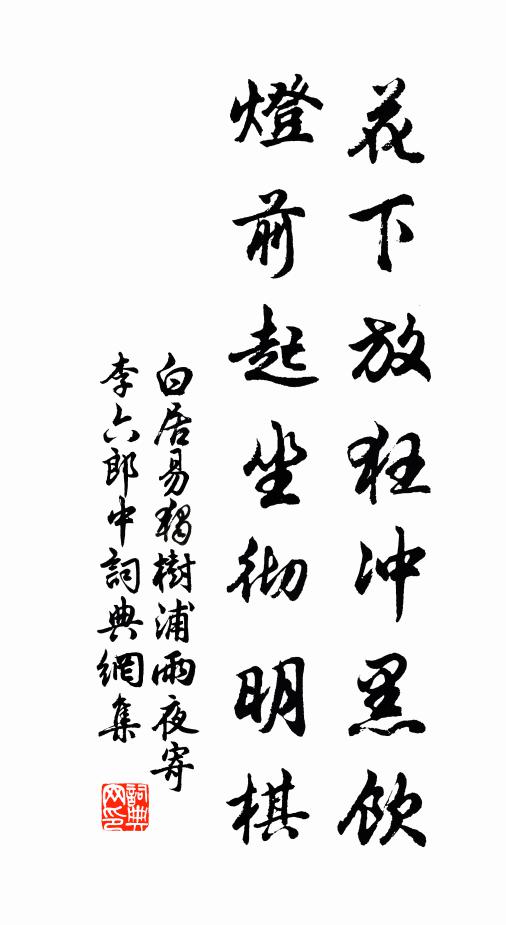 花下放狂冲黑飲
燈前起坐彻明棋
白居易獨樹浦雨夜寄
李六郎中詞典網集
詞典网印